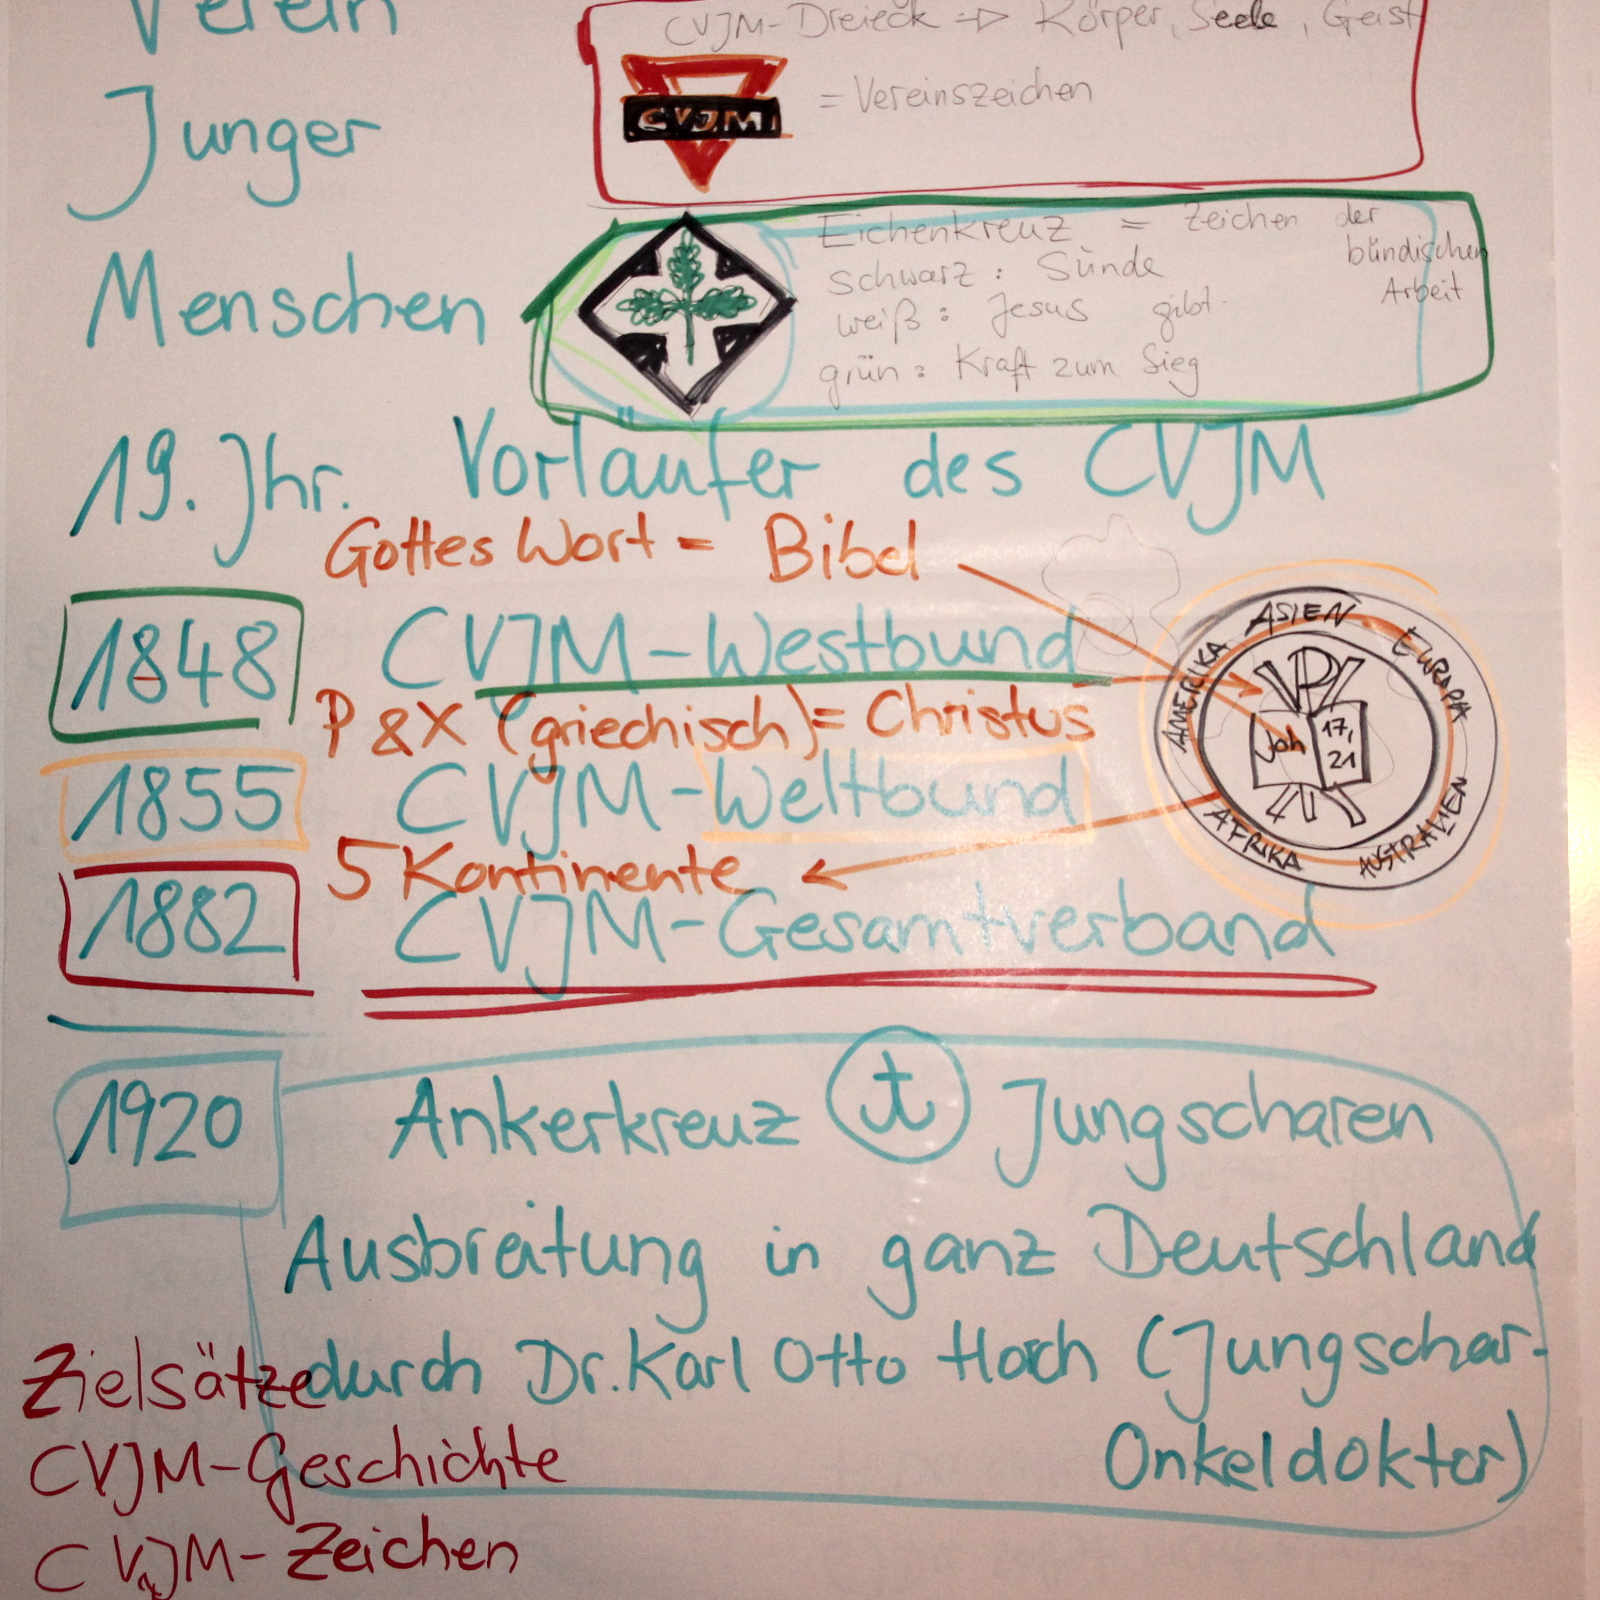 Verein
Junger
Menschen
CVJM-Dreieck => Körper, Seele, Geist
CVJM
= Vereinszeichen
Eichenkreuz = Zeichen der
bündischen
Arbeit
schwarz: Sünde
weiß: Jesus gibt
grün: Kraft zum Sieg
19. Jhr. Vorläufer des CVJM
Gottes Wort = Bibel
1848 CVJM-Westbund
P & X (griechisch) = Christus
1855 CVJM-Weltbund
5 Kontinente
1882 CVJM-Gesamtverband
AMERIKA ASIEN EUROPA
AFRIKA AUSTRALIEN
P X
Joh 17,
21
1920 Ankerkreuz Jungscharen
Ausbreitung in ganz Deutschland
durch Dr. Karl Otto Horch (Jungschar-
Onkeldoktor)
Zielsätze
CVJM-Geschichte
CVJM-Zeichen